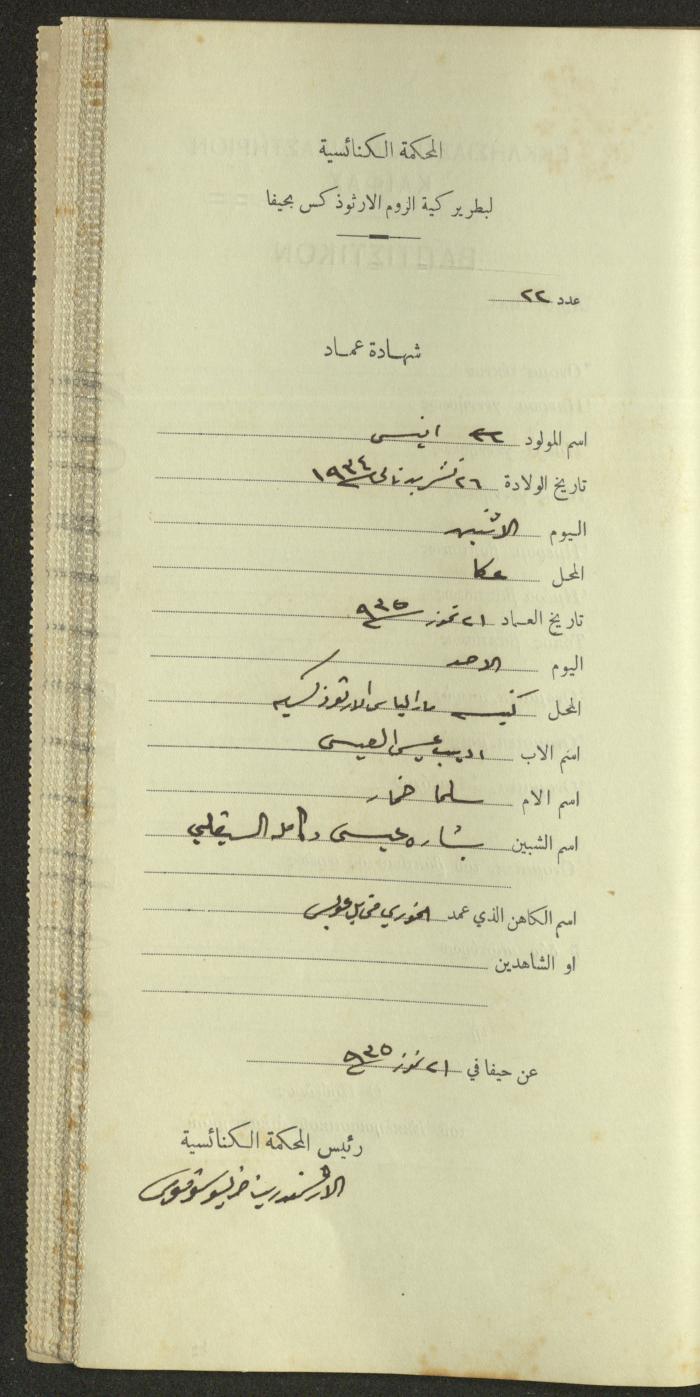 المحكمة الكنائسية
لبطريركية الروم الارثوذكس بحيفا
عدد ٢٢
شهادة عماد
اسم المولود انيس
تاريخ الولادة ٢٦ تشرين ثاني ١٩٣٤
اليوم الاثنين
المحل عكا
تاريخ العماد ٢١ تموز ٩٣٥
اليوم الاحد
المحل كنيسة مار الياس الارثوذكسيه
اسم الاب اديب عيسى العيسى
اسم الام سلما خمار
اسم الشبين بشاره عيسى وكامله السيقلي
اسم الكاهن الذي عمد الخوري
او الشاهدين
عن حيفا في ٢١ تموز ٩٣٥
رئيس المحكمة الكنائسية
الارشمندريت